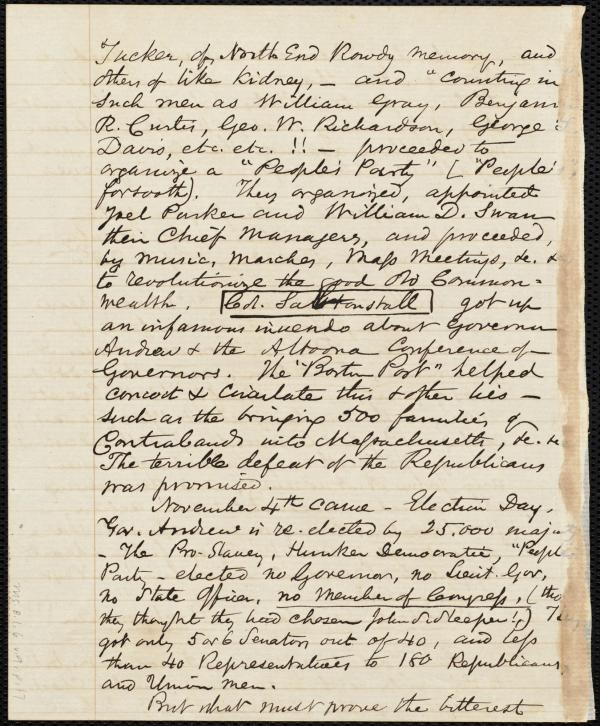 Tucker, of North End Rowdy memory, and
others of like kidney, – and "counting in
such men as William Gray, Benjam
R. Curtis, Geo. W. Richardson, George
Davis, etc. etc. !! – proceeded to
organize a "People's Party" ( "People'
forsooth). They organized, appointed
Joel Parker and William D. Swan
their Chief Managers, and proceeded,
by music, marches, Mass Meetings, &c. &
to revolutionize the good old Common-
wealth. Col. Saltonstall got up
an infamous inuendo about Governor
Andrew & the Altoona Conference of
Governors. The "Boston Post" helped
concoct & circulate this & other lies –
such as the bringing 500 families of
Contrabands into Massachusetts, &c. &c
The terrible defeat of the Republicans
was promised.
November 4th came – Election Day.
Gov. Andrew is re-elected by 25,000 majo
– The Pro-Slavery, Hunker Democratic, "Peopl
Party – elected no Governor, no Lieut. Gov,
no State Officer, no Member of Congress, (tho
they thought they had chosen John S. Sleeper!,)
got only 5 or 6 Senators out of 40, and less
than 40 Representatives to 180 Republicans
and Union men.
But what must prove the bitterest